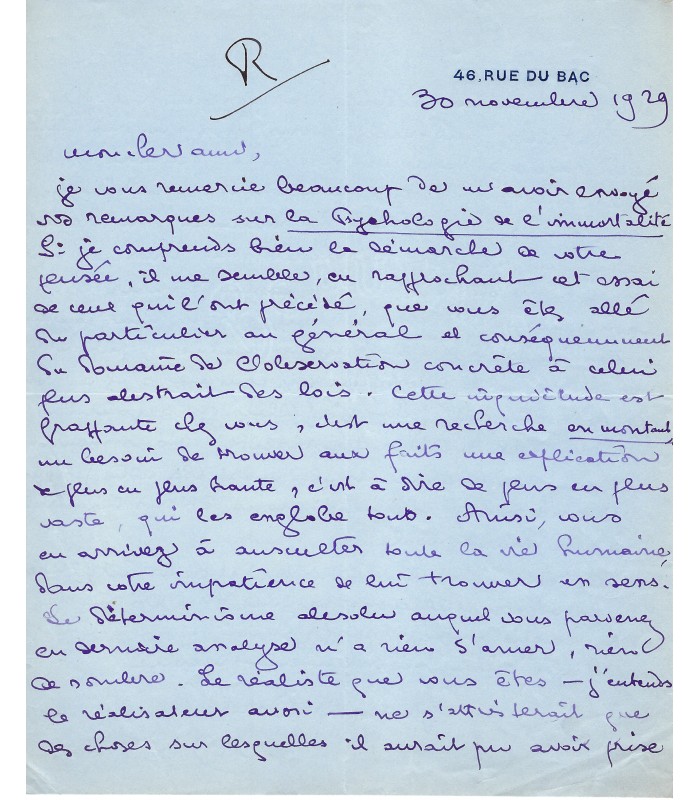 R
46, RUE DU BAC
30 novembre 1929
mon cher ami,
je vous remercie beaucoup de m'avoir envoyé
vos remarques sur la Psychologie de l'immortalité
Si je comprends bien la démarche de votre
pensée, il me semble, en rapprochant cet essai
de ceux qui l'ont précédé, que vous êtes allé
du particulier au général et conséquemment
du domaine de l'observation concrète à celui
plus abstrait des lois. Cette inquiétude est
frappante chez vous, c'est une recherche en montant,
un besoin de trouver aux faits une explication
de plus en plus haute, c'est à dire de plus en plus
vaste, qui les englobe tous. Ainsi, vous
en arrivez à ausculter toute la vie humaine
dans votre impatience de lui trouver un sens.
Le déterminisme absolu auquel vous parvenez
en dernière analyse n'a rien d'amer, rien
de sombre. Le réaliste que vous êtes — j'entends
le réalisateur aussi — ne s'attristerait que
des choses sur lesquelles il aurait pu avoir prise